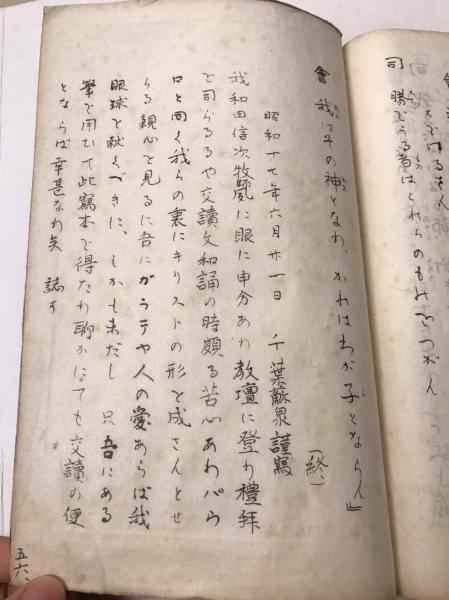 司 勝をうる者はこれらのものをつがん
會 我はその神となり、かれはわが子とならん」
(終)
昭和十七年六月廿一日 千葉 泉謹寫
我和田信次牧師に眼に申分あり教壇に登り禮拜
を司らるるや交讀文和誦の時頗る苦心ありパウ
ロと同く我らの裏にキリストの形を成さんとせ
らる親心を見るに吾にガラテヤ人の愛あらば我
眼球を献ぐべきに、しかも未だし 只吾にある
筆を用ひて此寫本を得たり聊かにても交讀の便
とならば幸甚なり矣 誌す
五六、